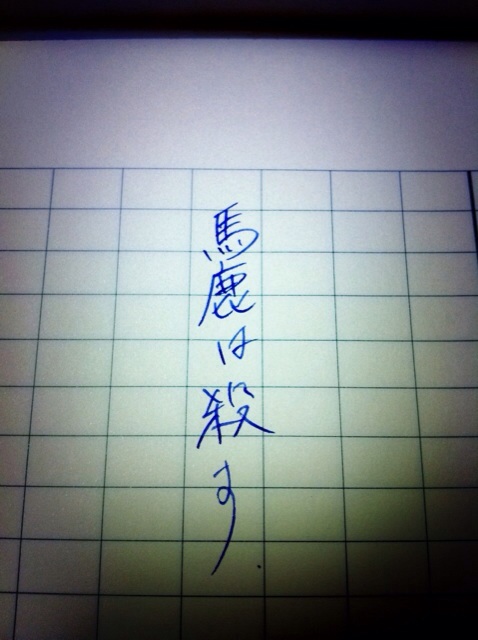 馬鹿は殺す.